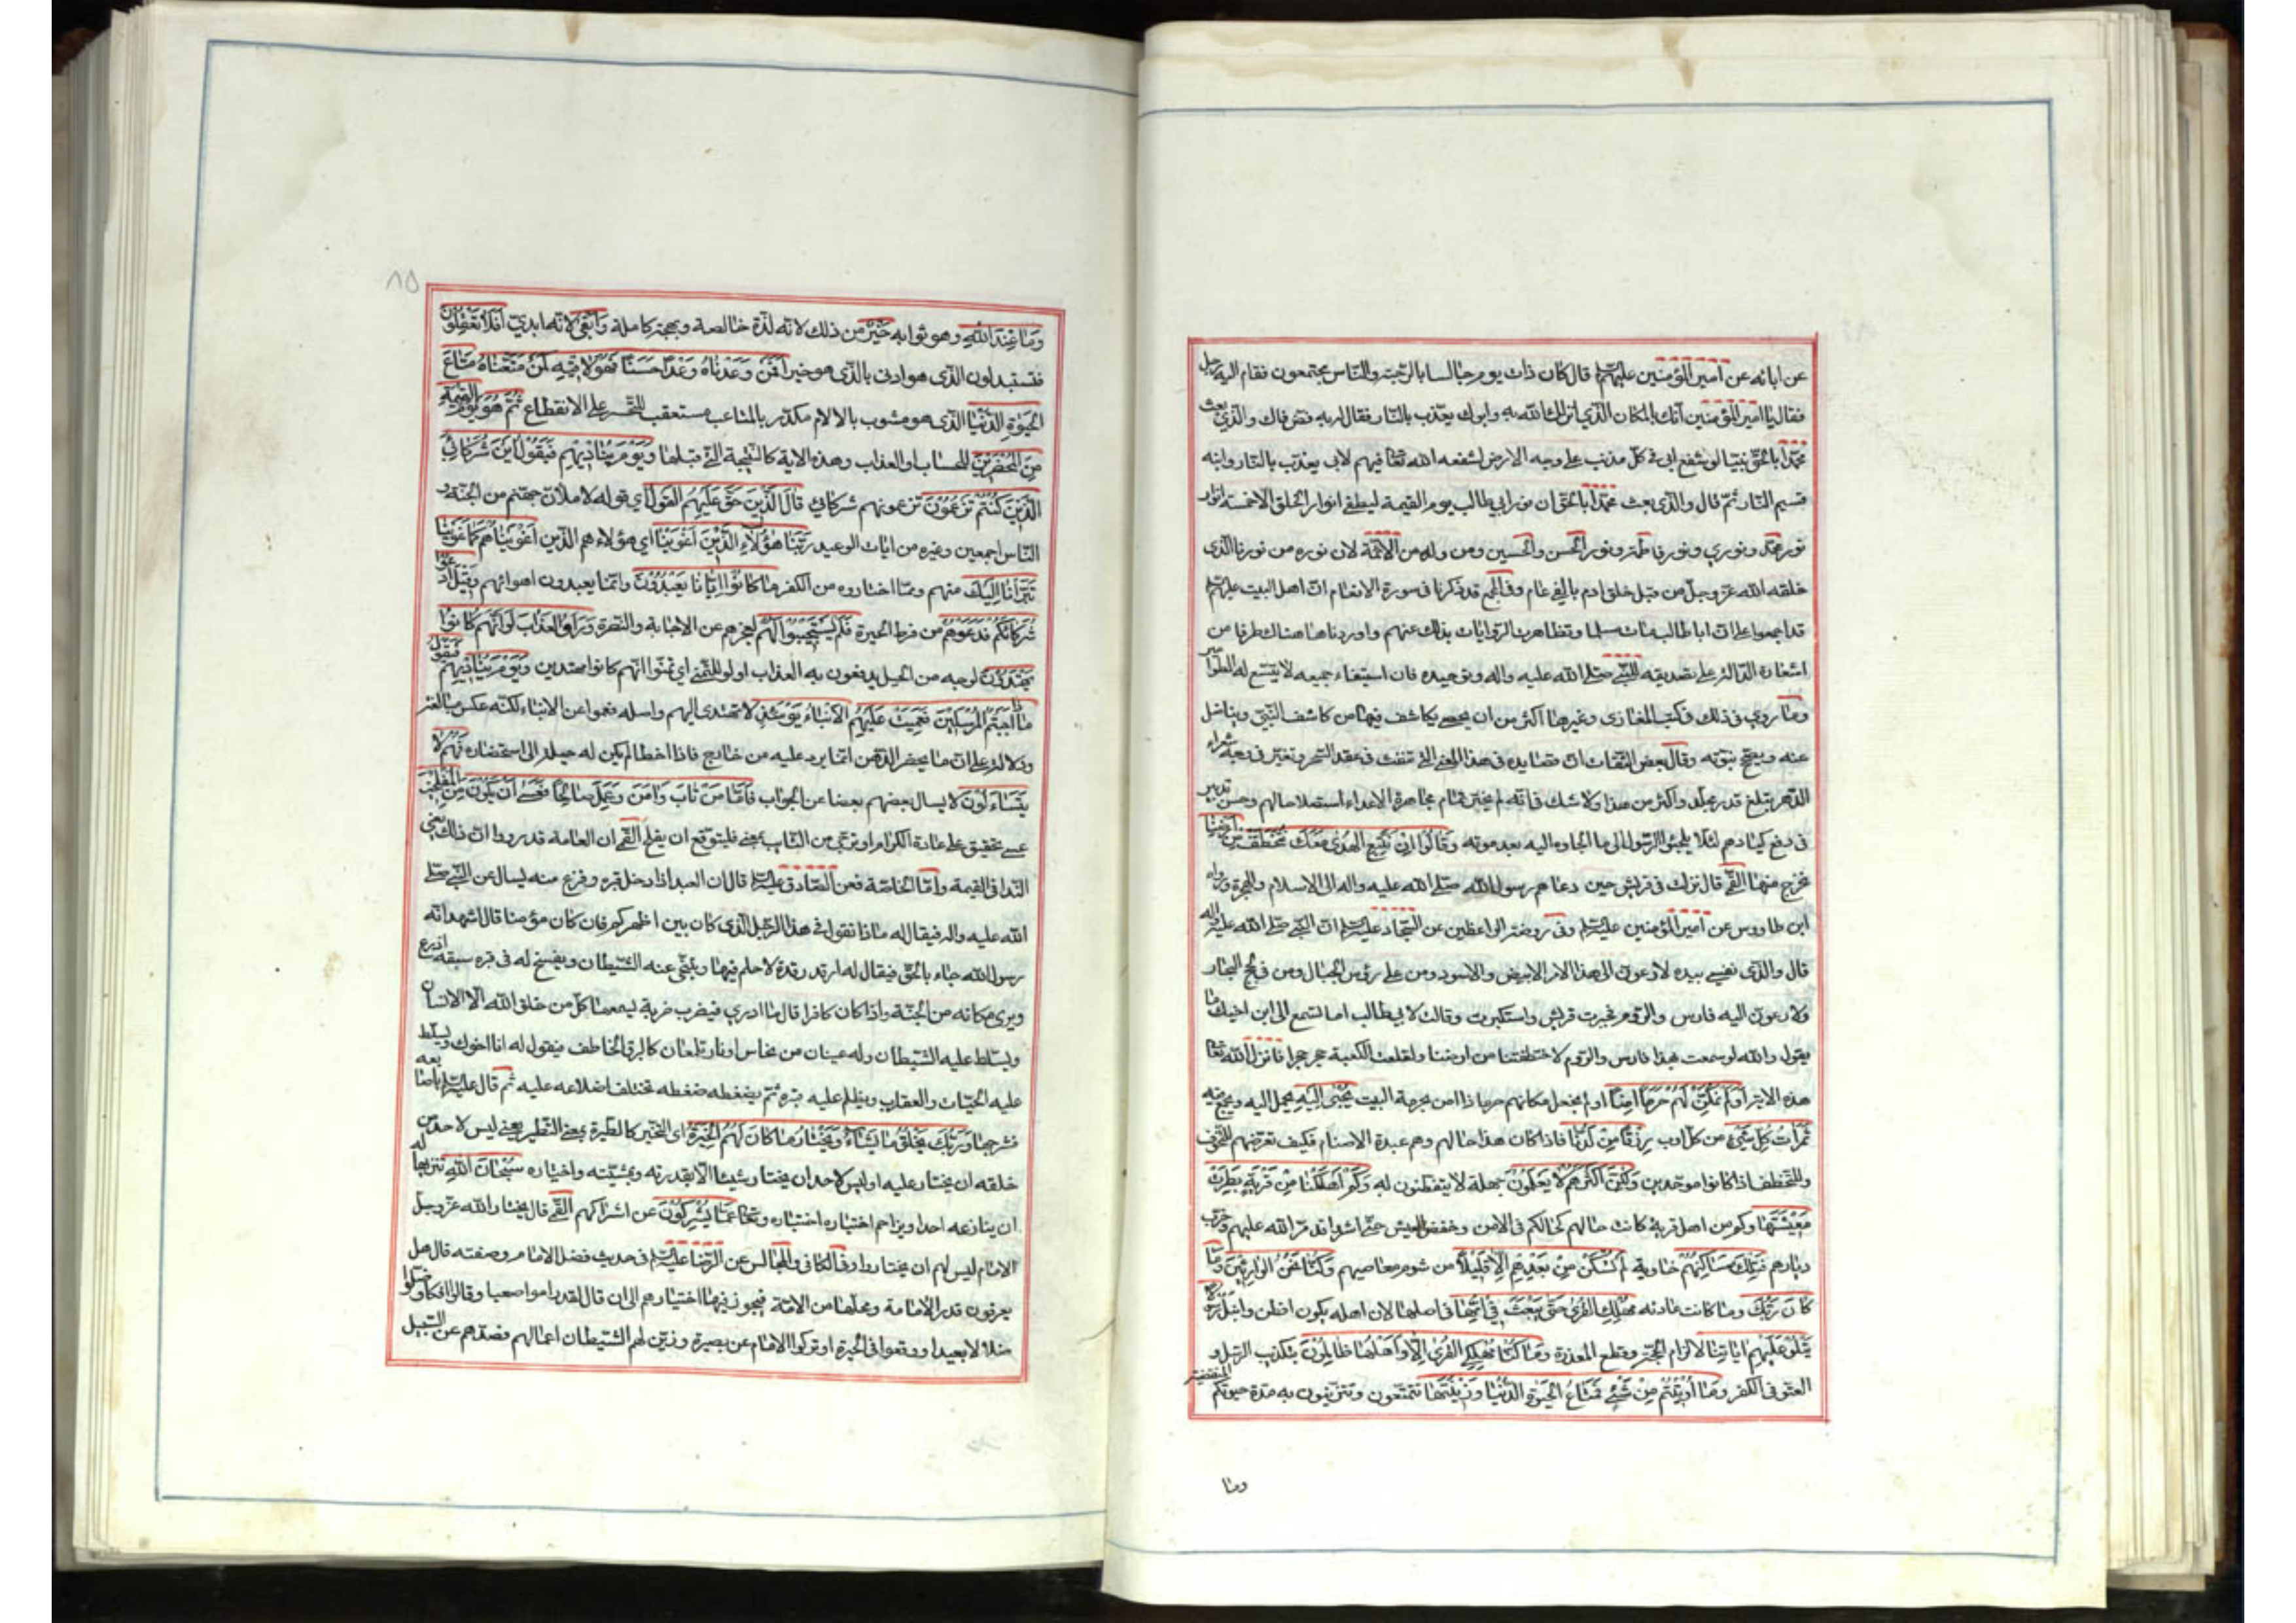 عن ابائه عن امير المؤمنين عليهم السلام قال كان ذات يوم جالسا بالرحبة والناس مجتمعون فقام اليه رجل
فقال يا امير المؤمنين انك بالمكان الذي انزلك الله به وابوك يعذب بالنار فقال له مه فض الله فاك والذي بعث
محمدا بالحق نبيا لو شفع ابي في كل مذنب على وجه الارض لشفعه الله تعالى فيهم لابي يعذب بالنار وابنه
قسيم النار ثم قال والذي بعث محمدا بالحق ان نور ابي طالب يوم القيمة ليطفئ انوار الخلق الا خمسة انوار
نور محمد ونوري ونور فاطمة ونور الحسن والحسين ومن ولده من الائمة لان نوره من نورنا الذي
خلقه الله عز وجل من قبل خلق ادم بالفي عام وفي المجمع قد ذكرنا في سورة الانعام ان اهل البيت عليهم السلام
قد اجمعوا على ان ابا طالب مات مسلما وتظاهرت الروايات بذلك عنهم واوردنا هناك طرفا من
اشعاره الدالة على تصديقه للنبي صلى الله عليه واله وتوحيده فان استيفاء جميعه لا يتسع له الطوامير
وما روي في ذلك في كتب المغازي وغيرها اكثر من ان يحصى يكاشف فيها من كاشف النبي ويناضل
عنه ويصحح نبوته وقال بعض الثقات ان قصايده في هذا المعنى التي تنفث في عقد السحر وتغبر في وجه شعراء
الدهر تبلغ قدر مجلد واكثر من هذا ولا شك فانه لم يختر تمام مجاهرة الاعداء استصلاحا لهم وحسن تدبير
في دفع كيادهم لئلا يلجئوا الرسول الى ما الجاوه اليه بعد موته وقالوا ان نتبع الهدى معك نتخطف من ارضنا
نخرج منها القمي قال نزلت في قريش حين دعاهم رسول الله صلى الله عليه واله الى الاسلام والهجرة ورواه
ابن طاووس عن امير المؤمنين عليه السلام وفي روضة الواعظين عن السجاد عليه السلام ان النبي صلى الله عليه واله
قال والذي نفسي بيده لادعون الى هذا الامر الابيض والاسود ومن على رؤس الجبال ومن في لجج البحار
ولادعون اليه فارس والروم فجبرت قريش واستكبرت وقالت لابي طالب اما تسمع الى ابن اخيك ما
يقول والله لو سمعت بهذا فارس والروم لاختطفتنا من ارضنا ولقلعت الكعبة حجرا حجرا فانزل الله تعالى
هذه الاية اولم نمكن لهم حرما امنا اولم نجعل مكانهم حرما ذا امن بحرمة البيت يجبى اليه يحمل اليه ويجمع فيه
ثمرات كل شيئ من كل اوب رزقا من لدنا فاذا كان هذا حالهم وهم عبدة الاصنام فكيف نعرضهم للتخوف
وللتخطف اذا كانوا موحدين ولكن اكثرهم لا يعلمون جهلة لا يتفطنون له وكم اهلكنا من قرية بطرت
معيشتها وكم من اهل قرية كانت حالهم كحالكم في الامن وخفض العيش حتى اشروا فدمر الله عليهم وخرب
ديارهم فتلك مساكنهم خاوية لم تسكن من بعدهم الا قليلا من شوم معاصيهم وكنا نحن الوارثين وما
كان ربك وما كانت عادته مهلك القرى حتى يبعث في امها في اصلها لان اهله يكون افطن وانبل رسولا
يتلو عليهم اياتنا لالزام الحجة وقطع المعذرة وما كنا مهلكي القرى الا واهلها ظالمون بتكذيب الرسل و
العتو في الكفر وما اوتيتم من شيئ فمتاع الحيوة الدنيا وزينتها تتمتعون وتتزينون به مدة حيوتكم المنقضية
وما
۸۵
وما عند الله وهو ثوابه خير من ذلك لانه لذة خالصة وبهجة كاملة وابقى لانه ابدي افلا تعقلون
فتستبدلون الذي هو ادنى بالذي هو خير افمن وعدناه وعدا حسنا فهو لاقيه كمن متعناه متاع
الحيوة الدنيا الذي هو مشوب بالالام مكدر بالمتاعب مستعقب للتحسر على الانقطاع ثم هو يوم القيمة
من المحضرين للحساب او العذاب وهذه الاية كالنتيجة التي قبلها ويوم يناديهم فيقول اين شركائي
الذين كنتم تزعمون تزعمونهم شركائي قال الذين حق عليهم القول اي قوله لاملان جهنم من الجنة و
الناس اجمعين وغيره من ايات الوعيد ربنا هؤلاء الذين اغوينا اي هؤلاء هم الذين اغويناهم كما غوينا
تبرانا اليك منهم ومما اختاروه من الكفر ما كانوا ايانا يعبدون وانما يعبدون اهوائهم وقيل ادعوا
شركائكم فدعوهم من فرط الحيرة فلم يستجيبوا لهم لعجزهم عن الاجابة والنصرة وراوا العذاب لو انهم كانوا
يهتدون لوجه من الحيل يدفعون به العذاب او لو للتمني اي تمنوا انهم كانوا مهتدين ويوم يناديهم فيقول
ماذا اجبتم المرسلين فعميت عليهم الانباء يومئذ لا تهتدي اليهم واصله فعموا عن الانباء لكنه عكس مبالغة
ودلالة على ان ما يحضر الذهن انما يرد عليه من خارج فاذا اخطا لم يكن له حيلة الى استحضاره فهم لا
يتساءلون لا يسال بعضهم بعضا عن الجواب فاما من تاب وامن وعمل صالحا فعسى ان يكون من المفلحين
عسى تحقيق على عادة الكرام او ترجي من التائب بمعنى فليتوقع ان يفلح القمي ان العامة قد رووا ان ذلك يعني
النداء في القيمة واما الخاصة فعن الصادق عليه السلام قال ان العبد اذا دخل قبره وفزع منه يسال عن النبي صلى
الله عليه واله فيقال له ماذا تقول في هذا الرجل الذي كان بين اظهركم فان كان مؤمنا قال اشهد انه
رسول الله جاء بالحق فيقال له ارقد رقدة لا حلم فيها ويتنحى عنه الشيطان ويفسح له في قبره سبعة اذرع
ويرى مكانه من الجنة واذا كان كافرا قال ما ادري فيضرب ضربة يسمعها كل من خلق الله الا الانسان
ويسلط عليه الشيطان وله عينان من نحاس او نار تلمعان كالبرق الخاطف فيقول له انا اخوك ويسلط
عليه الحيات والعقارب ويظلم عليه قبره ثم يضغطه ضغطه تختلف اضلاعه عليه ثم قال عليه السلام باصابعه
فشرجها وربك يخلق ما يشاء ويختار ما كان لهم الخيرة اي التخير كالطيرة بمعنى التطير يعني ليس لاحد من
خلقه ان يختار عليه او ليس لاحد ان يختار شيئا الا بقدرته وبمشيته واختياره سبحان الله تنزيها له
ان ينازعه احد او يزاحم اختياره اختياره وتعالى عما يشركون عن اشراكهم القمي قال يختار الله عز وجل
الامام ليس لهم ان يختاروا وفي الكافي والمجالس عن الرضا عليه السلام في حديث فضل الامام وصفته قال هل
يعرفون قدر الامامة ومحلها من الامة فيجوز فيها اختيارهم الى ان قال لقد راموا صعبا وقالوا افكا وضلوا
ضلالا بعيدا ووقعوا في الحيرة اذ تركوا الامام عن بصيرة وزين لهم الشيطان اعمالهم فصدهم عن السبيل